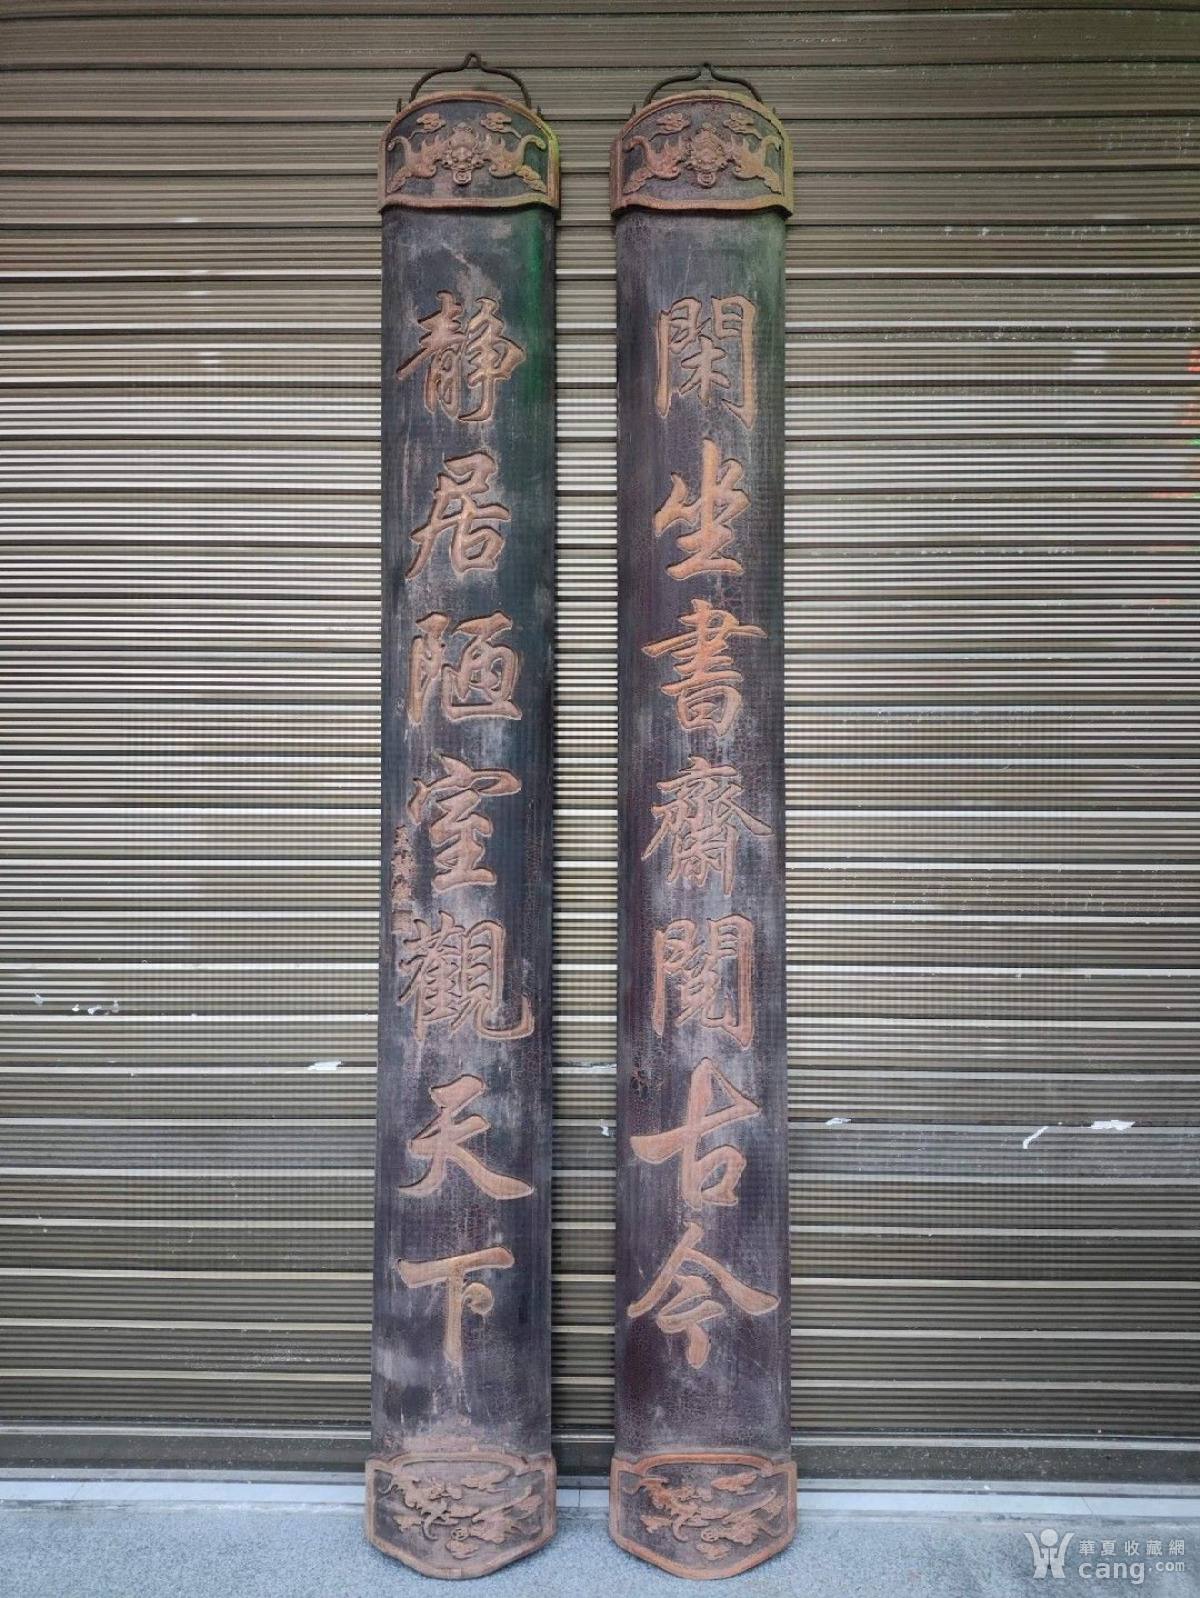 閑坐書齋閱古今
靜居陋室觀天下
華夏收藏網
cang.com